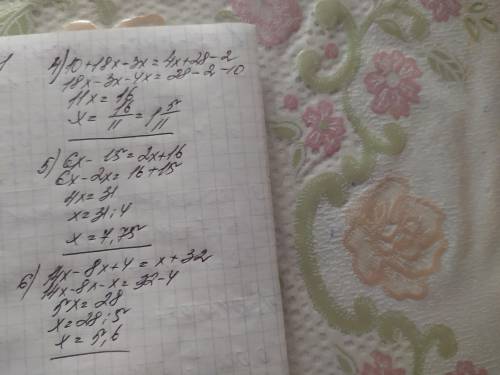 4) 10+18x-3x=4x+28-2
18x-3x-4x=28-2-10
11x=16
x=16/11=1 5/11
5) 6x-15=2x+16
6x-2x=16+15
4x=31
x=31:4
x=7,75
6) 14x-8x+4=x+32
14x-8x-x=32-4
5x=28
x=28:5
x=5,6